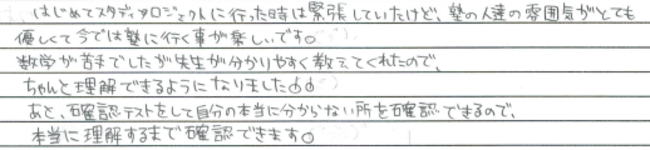 はじめてスタディプロジェクトに行った時は緊張していたけど、塾の人達の雰囲気がとても
優しくて今では塾に行く事が楽しいです。
数学が苦手でしたが先生が分かりやすく教えてくれたので、
ちゃんと理解できるようになりました
あと、確認テストをして自分の本当に分からない所を確認できるので、
本当に理解するまで確認できます。